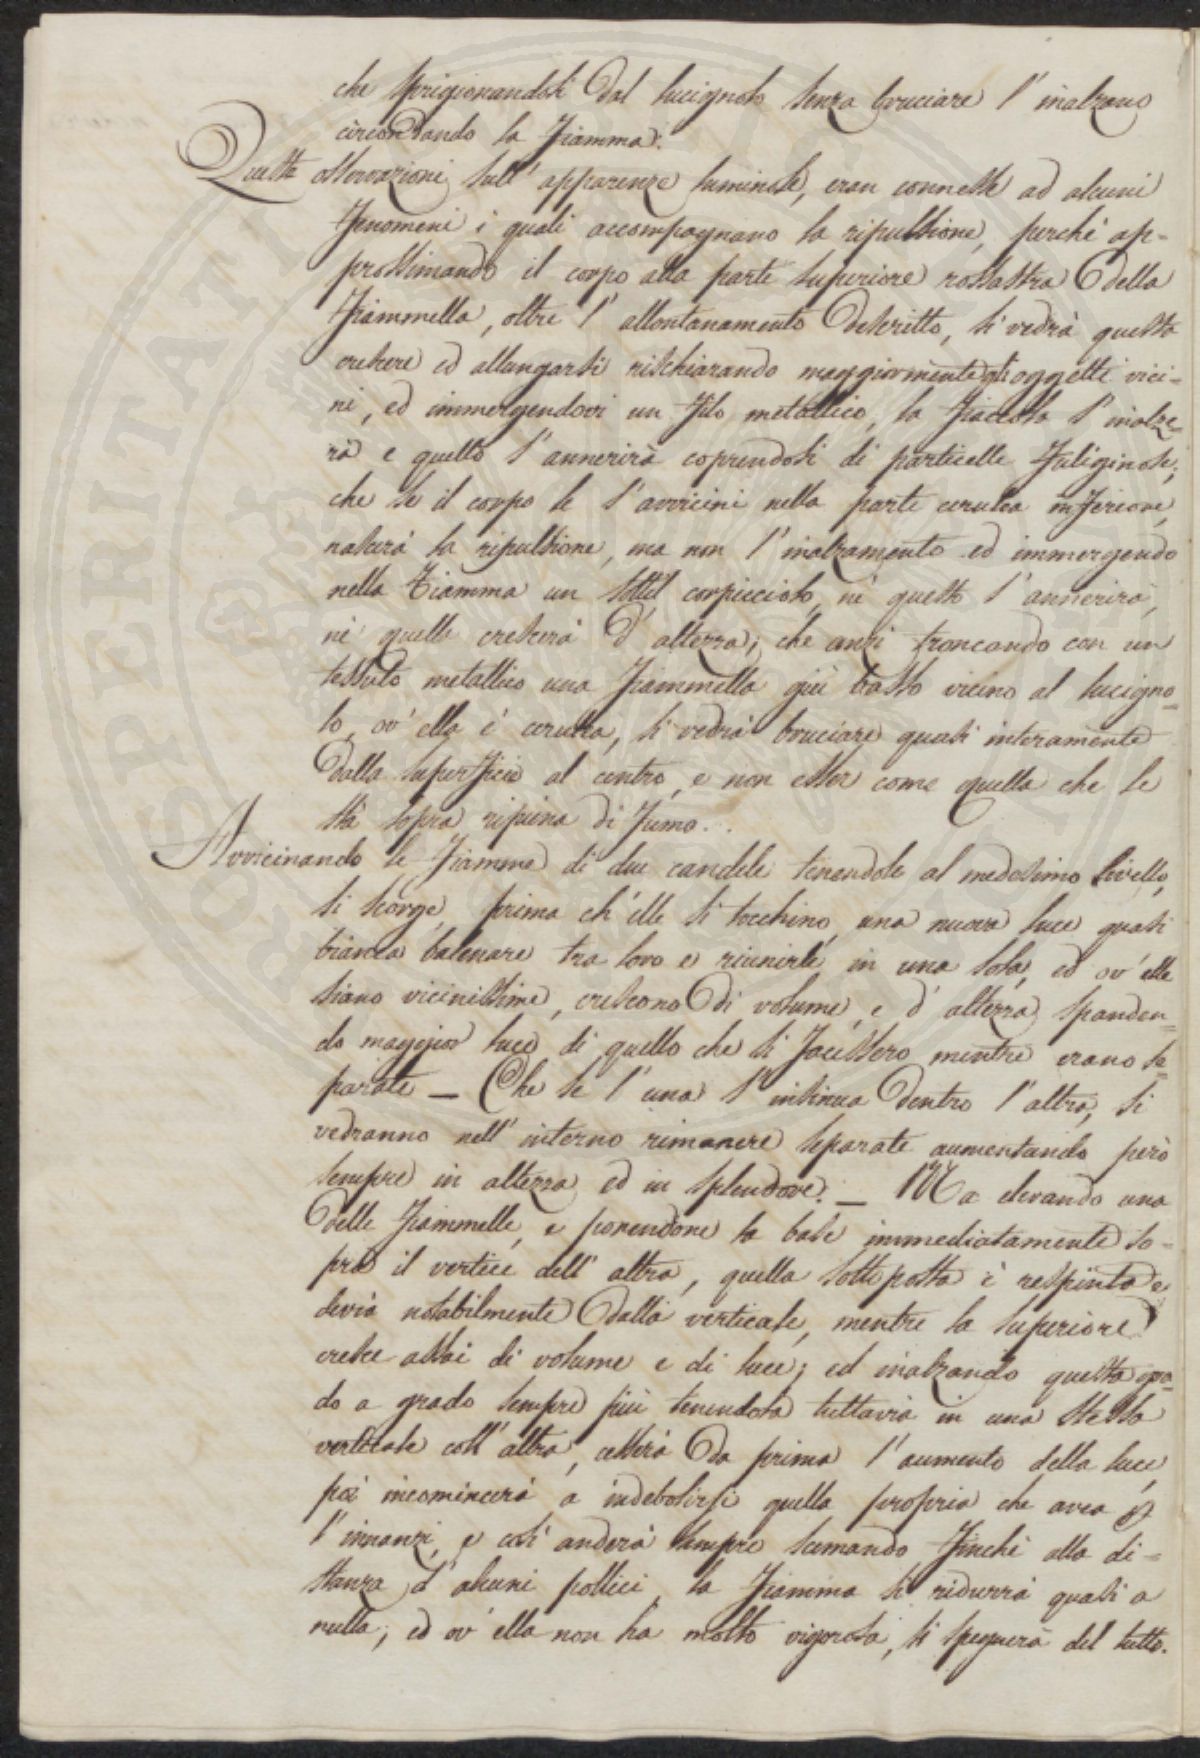 che sprigionandosi dal lucignolo senza bruciare s'inalzano
circondando la fiamma.
Queste osservazioni sull'apparenze luminose, eran connesse ad alcuni
fenomeni i quali accompagnano la ripulsione, perchè ap-
prossimando il corpo alla parte superiore rossastra della
fiammella, oltre l'allontanamento descritto, si vedrà questa
crescere ed allungarsi rischiarando maggiormente gli oggetti vici-
ni, ed immergendovi un filo metallico, la fiaccola s'inalze-
rà e quello s'annerirà coprendosi di particelle fuliginose;
che se il corpo le s'avvicini nella parte cerulea inferiore,
nascerà la ripulsione, ma non l'inalzamento ed immergendo
nella fiamma un sottil corpicciolo, nè questo s'annerirà,
nè quella crescerà d'altezza; che anzi troncando con un
tessuto metallico una fiammella giù basso vicino al lucigno-
lo, ov'ella è cerulea, si vedrà bruciare quasi interamente
dalla superficie al centro, e non esser come quella che le
stà sopra ripiena di fumo.
Avvicinando le fiamme di due candele tenendole al medesimo livello,
si scorge, prima ch'elle si tocchino, una nuova luce quasi
bianca balenare tra loro e riunirle in una sola, ed ov'elle
siano vicinissime, crescono di volume, e d'altezza spanden-
do maggior luce di quello che si facessero mentre erano se-
parate — Che se l'una s'insinua dentro l'altra, si
vedranno nell'interno rimanere separate aumentando però
sempre in altezza ed in splendore. — Ma elevando una
delle fiammelle, e ponendone la base immediatamente so-
pra il vertice dell'altra, quella sottoposta è respinta e
devia notabilmente dalla verticale, mentre la superiore
cresce assai di volume e di luce; ed inalzando questa gra-
do a grado sempre più tenendola tuttavia in una stessa
verticale coll'altra, cesserà da prima l'aumento della luce,
poi incomincerà a indebolirsi quella propria che avea per
l'innanzi, e così anderà sempre scemando, finchè alla di-
stanza d'alcuni pollici, la fiamma si ridurrà quasi a
nulla, ed ov'ella non ha molto vigorosa, si spegnerà del tutto.